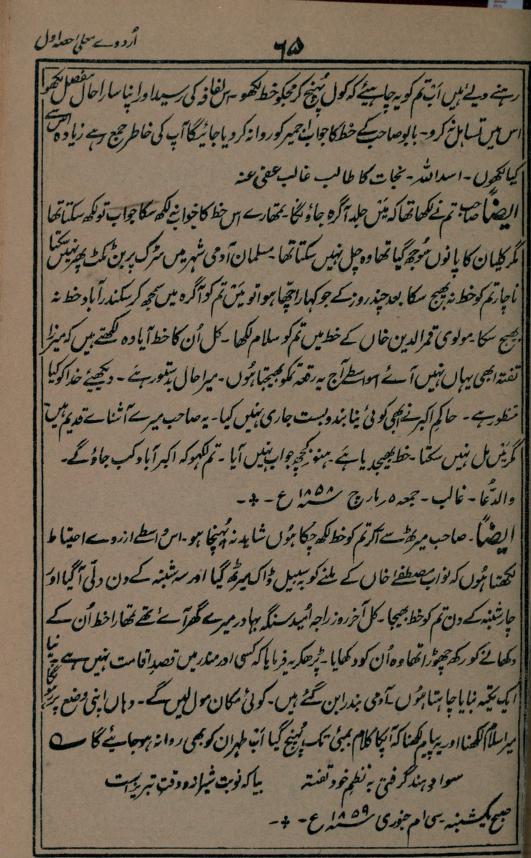 اُردوے معلےٰ حصہ اول
٦٥
رہنے والے ہیں اب تم کو یہ چاہیئے کہ کول پُہنچ کر مجکو خط لکھو۔ اس لفافہ کی رسید اور اپنا سارا حال مفصل لکھو
اس میں تساہل نہ کرو۔ بابو صاحب کے خط کا جواب اجمیر کو روانہ کر دیا جائیگا آپ کی خاطر جمع رہے زیادہ اس سے
کیا لکھوں۔ اسد اللہ۔ نجات کا طالب غالب عفی عنہ
ایضاً صاحب تم نے لکھا تھا کہ میں جلد آگرہ جاؤنگا۔ تمھارے اس خط کا جواب نہ لکھ سکا جواب تو لکھ سکتا تھا
مگر کلیان کا پانوں سُوجھ گیا تھا وہ چل نہیں سکتا تھا۔ مسلمان آدمی شہر میں سڑک پر بن ٹکٹ پھر نہیں سکتا
ناچار تم کو خط نہ بھیج سکا بعد چند روز کے جو کہار اچھا ہوا تو میں تم کو آگرہ میں سمجھ کر سکندرآباد خط نہ
بھیج سکا۔ مولوی قمر الدین خاں کے خط میں تم کو سلام لکھا۔ کل اُن کا خط آیا وہ لکھتے ہیں کہ میرزا
تفتہ ابھی یہاں نہیں آئے اسواسطے آج یہ رقعہ تمکو بھیجتا ہوں۔ میرا حال بدستور ہے۔ دیکھیئے خدا کو کیا
منظور ہے۔ حاکم اکبر نے ابھی کوئی نیا بندوبست جاری نہیں کیا۔ یہ صاحب میرے آشنائے قدیم ہیں
مگر میں مل نہیں سکتا۔ خط بھیجدیا ہے۔ ہنوز کچھ جواب نہیں آیا۔ تم لکھو کہ اکبرآباد کب جاؤ گے۔
والدُّعا۔ غالب۔ جمعہ ٥ مارچ سنہ ١٨٥٨ ع۔
ایضاً۔ صاحب میرٹھ سے آکر تم کو خط لکھ چکا ہوں شاید نہ پُہنچا ہو۔ اس واسطے از روے احتیاط
لکھتا ہوں کہ نواب مصطفےٰ خاں کے ملنے کو بسبیل ڈاک میرٹھ گیا اور سہ شنبہ کے دن دلّی آگیا اور
چار شنبہ کے دن تم کو خط بھیجا۔ کل آخر روز راجہ امید سنگہ بہادر میرے گھر آئے تھے تمھارا خط اُن کے
دکھانے کو رکھ چھوڑا تھا وہ اُن کو دکھایا۔ پڑھکر یہ فرمایا کہ کسی اور مندر میں قصد اقامت نہیں ہے نیا
ایک تکیہ بنایا چاہتا ہوں۔ آدمی بندرابن گئے ہیں۔ کوئی مکان مول لیں گے۔ وہاں اپنی وضع پر رہونگا
میرا سلام لکھنا اور یہ پیام لکھنا کہ آپکا کلام بمبئی تک پُہنچ گیا اب طہران کو بھی روانہ ہو جائے گا
سوادِ ہند گرفتی بہ نظمِ خود تفتہ بیا کہ نوبتِ شیراز و وقتِ تبریز است
صبح یکشنبہ سی ام جنوری سنہ ١٨٥٩ ع۔